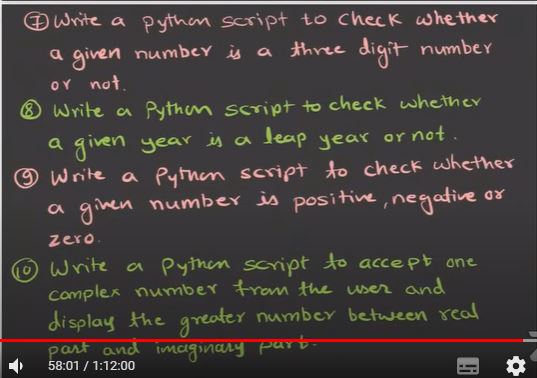 ⑦ Write a python script to check whether
a given number is a three digit number
or not.
⑧ Write a Python script to check whether
a given year is a leap year or not.
⑨ Write a Python script to check whether
a given number is positive, negative or
zero.
⑩ Write a Python script to accept one
complex number from the user and
display the greater number between real
part and imaginary part.
58:01 / 1:12:00